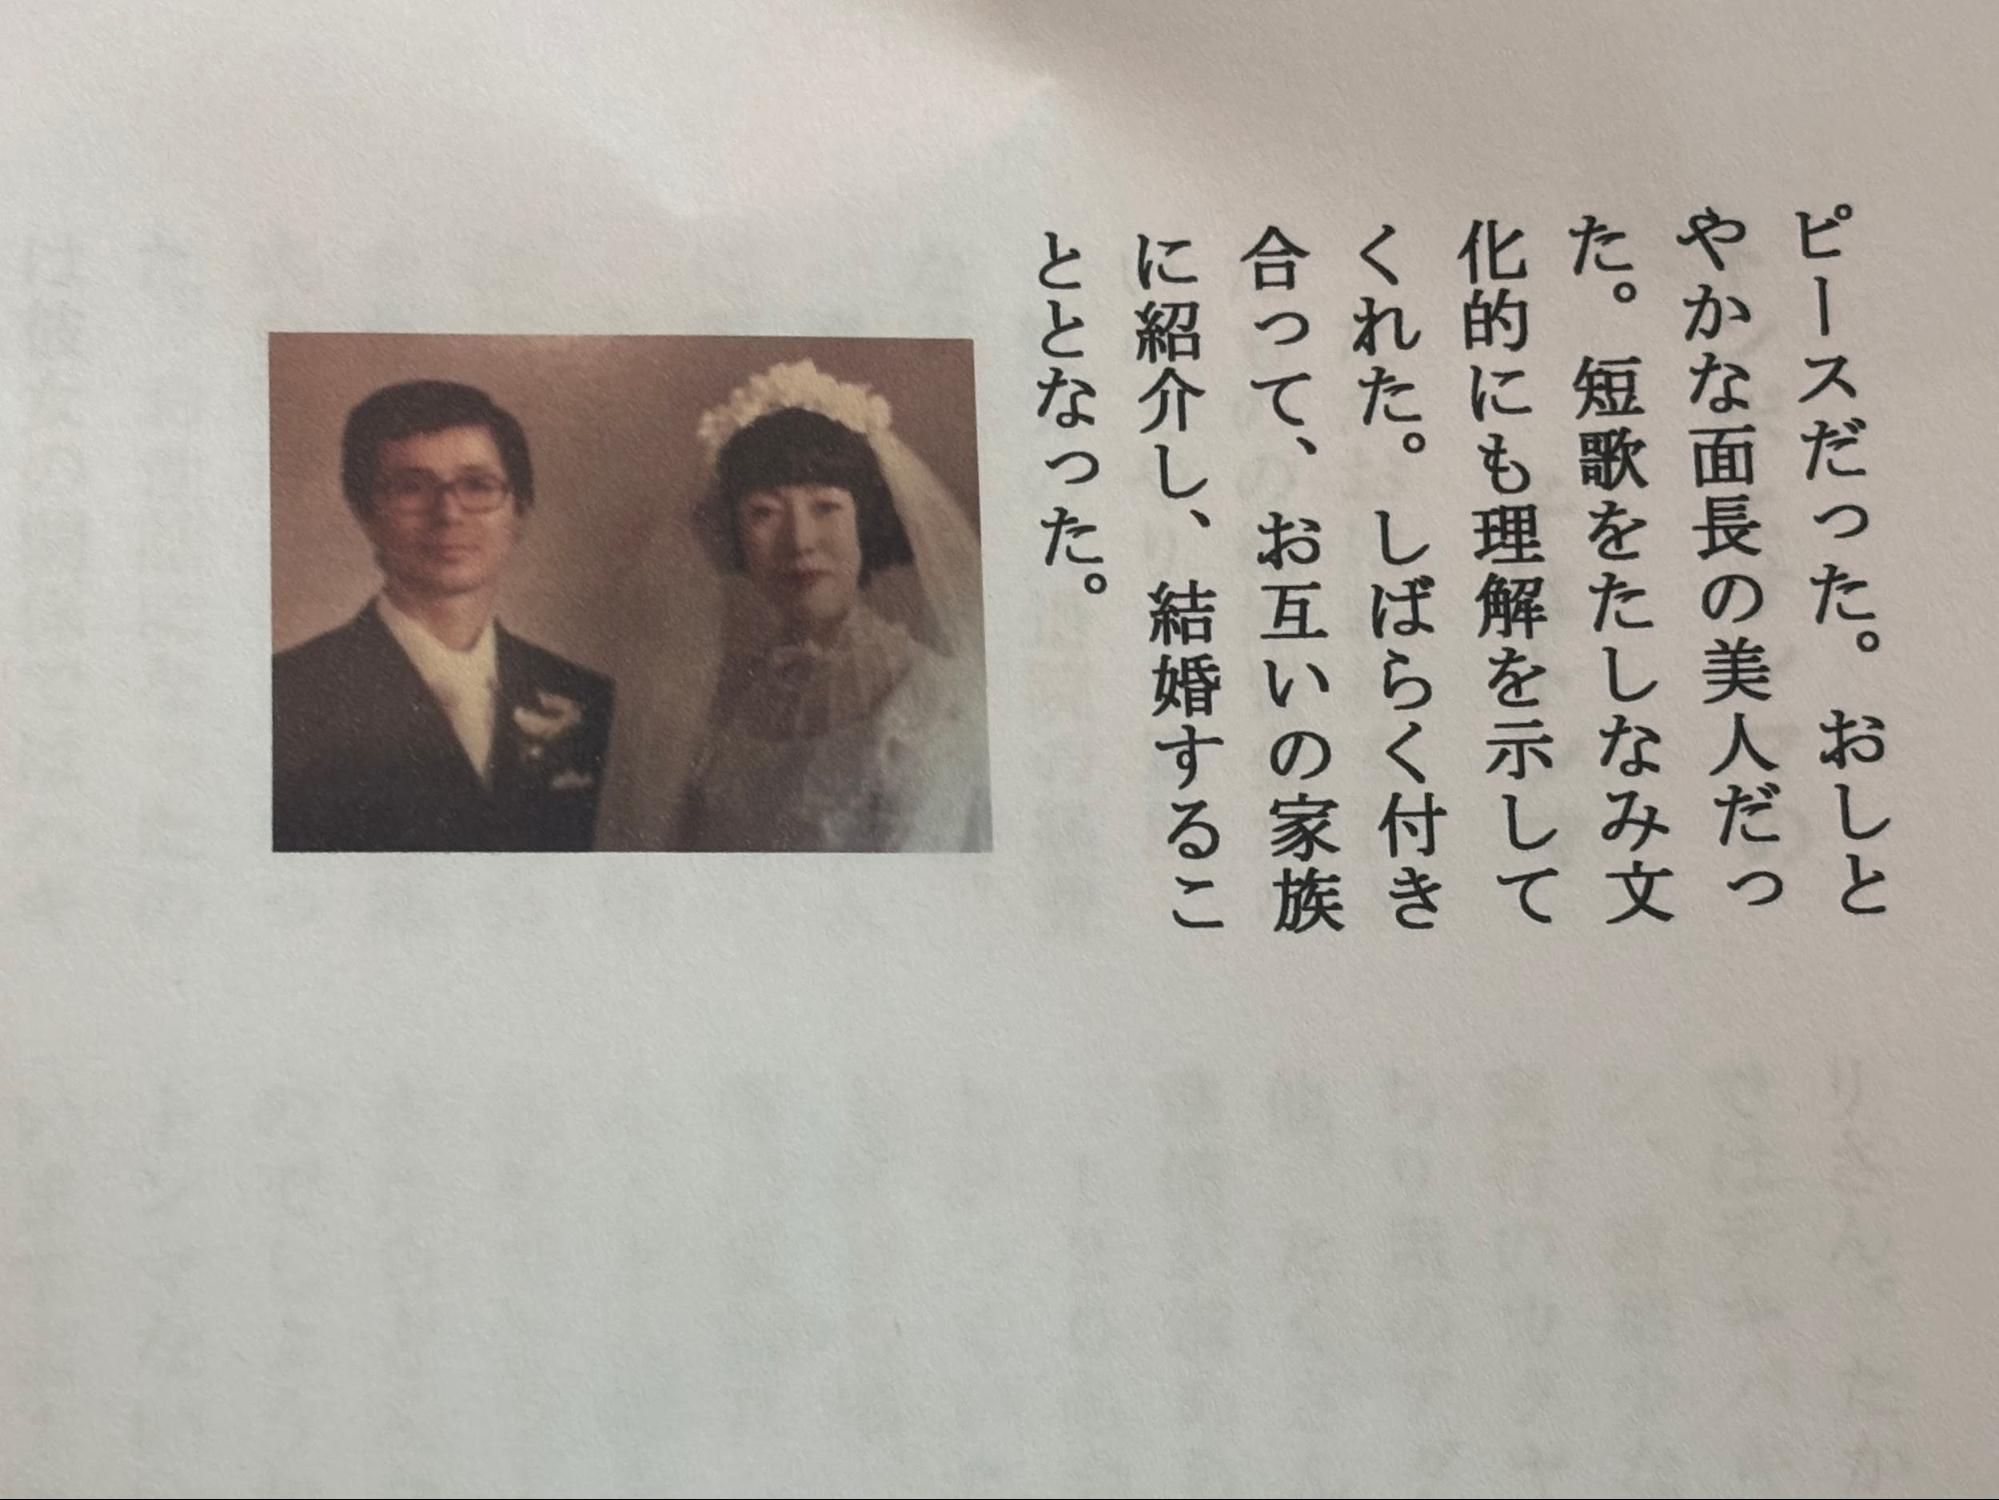 ピースだった。おしと
やかな面長の美人だっ
た。短歌をたしなみ文
化的にも理解を示して
くれた。しばらく付き
合って、お互いの家族
に紹介し、結婚するこ
ととなった。